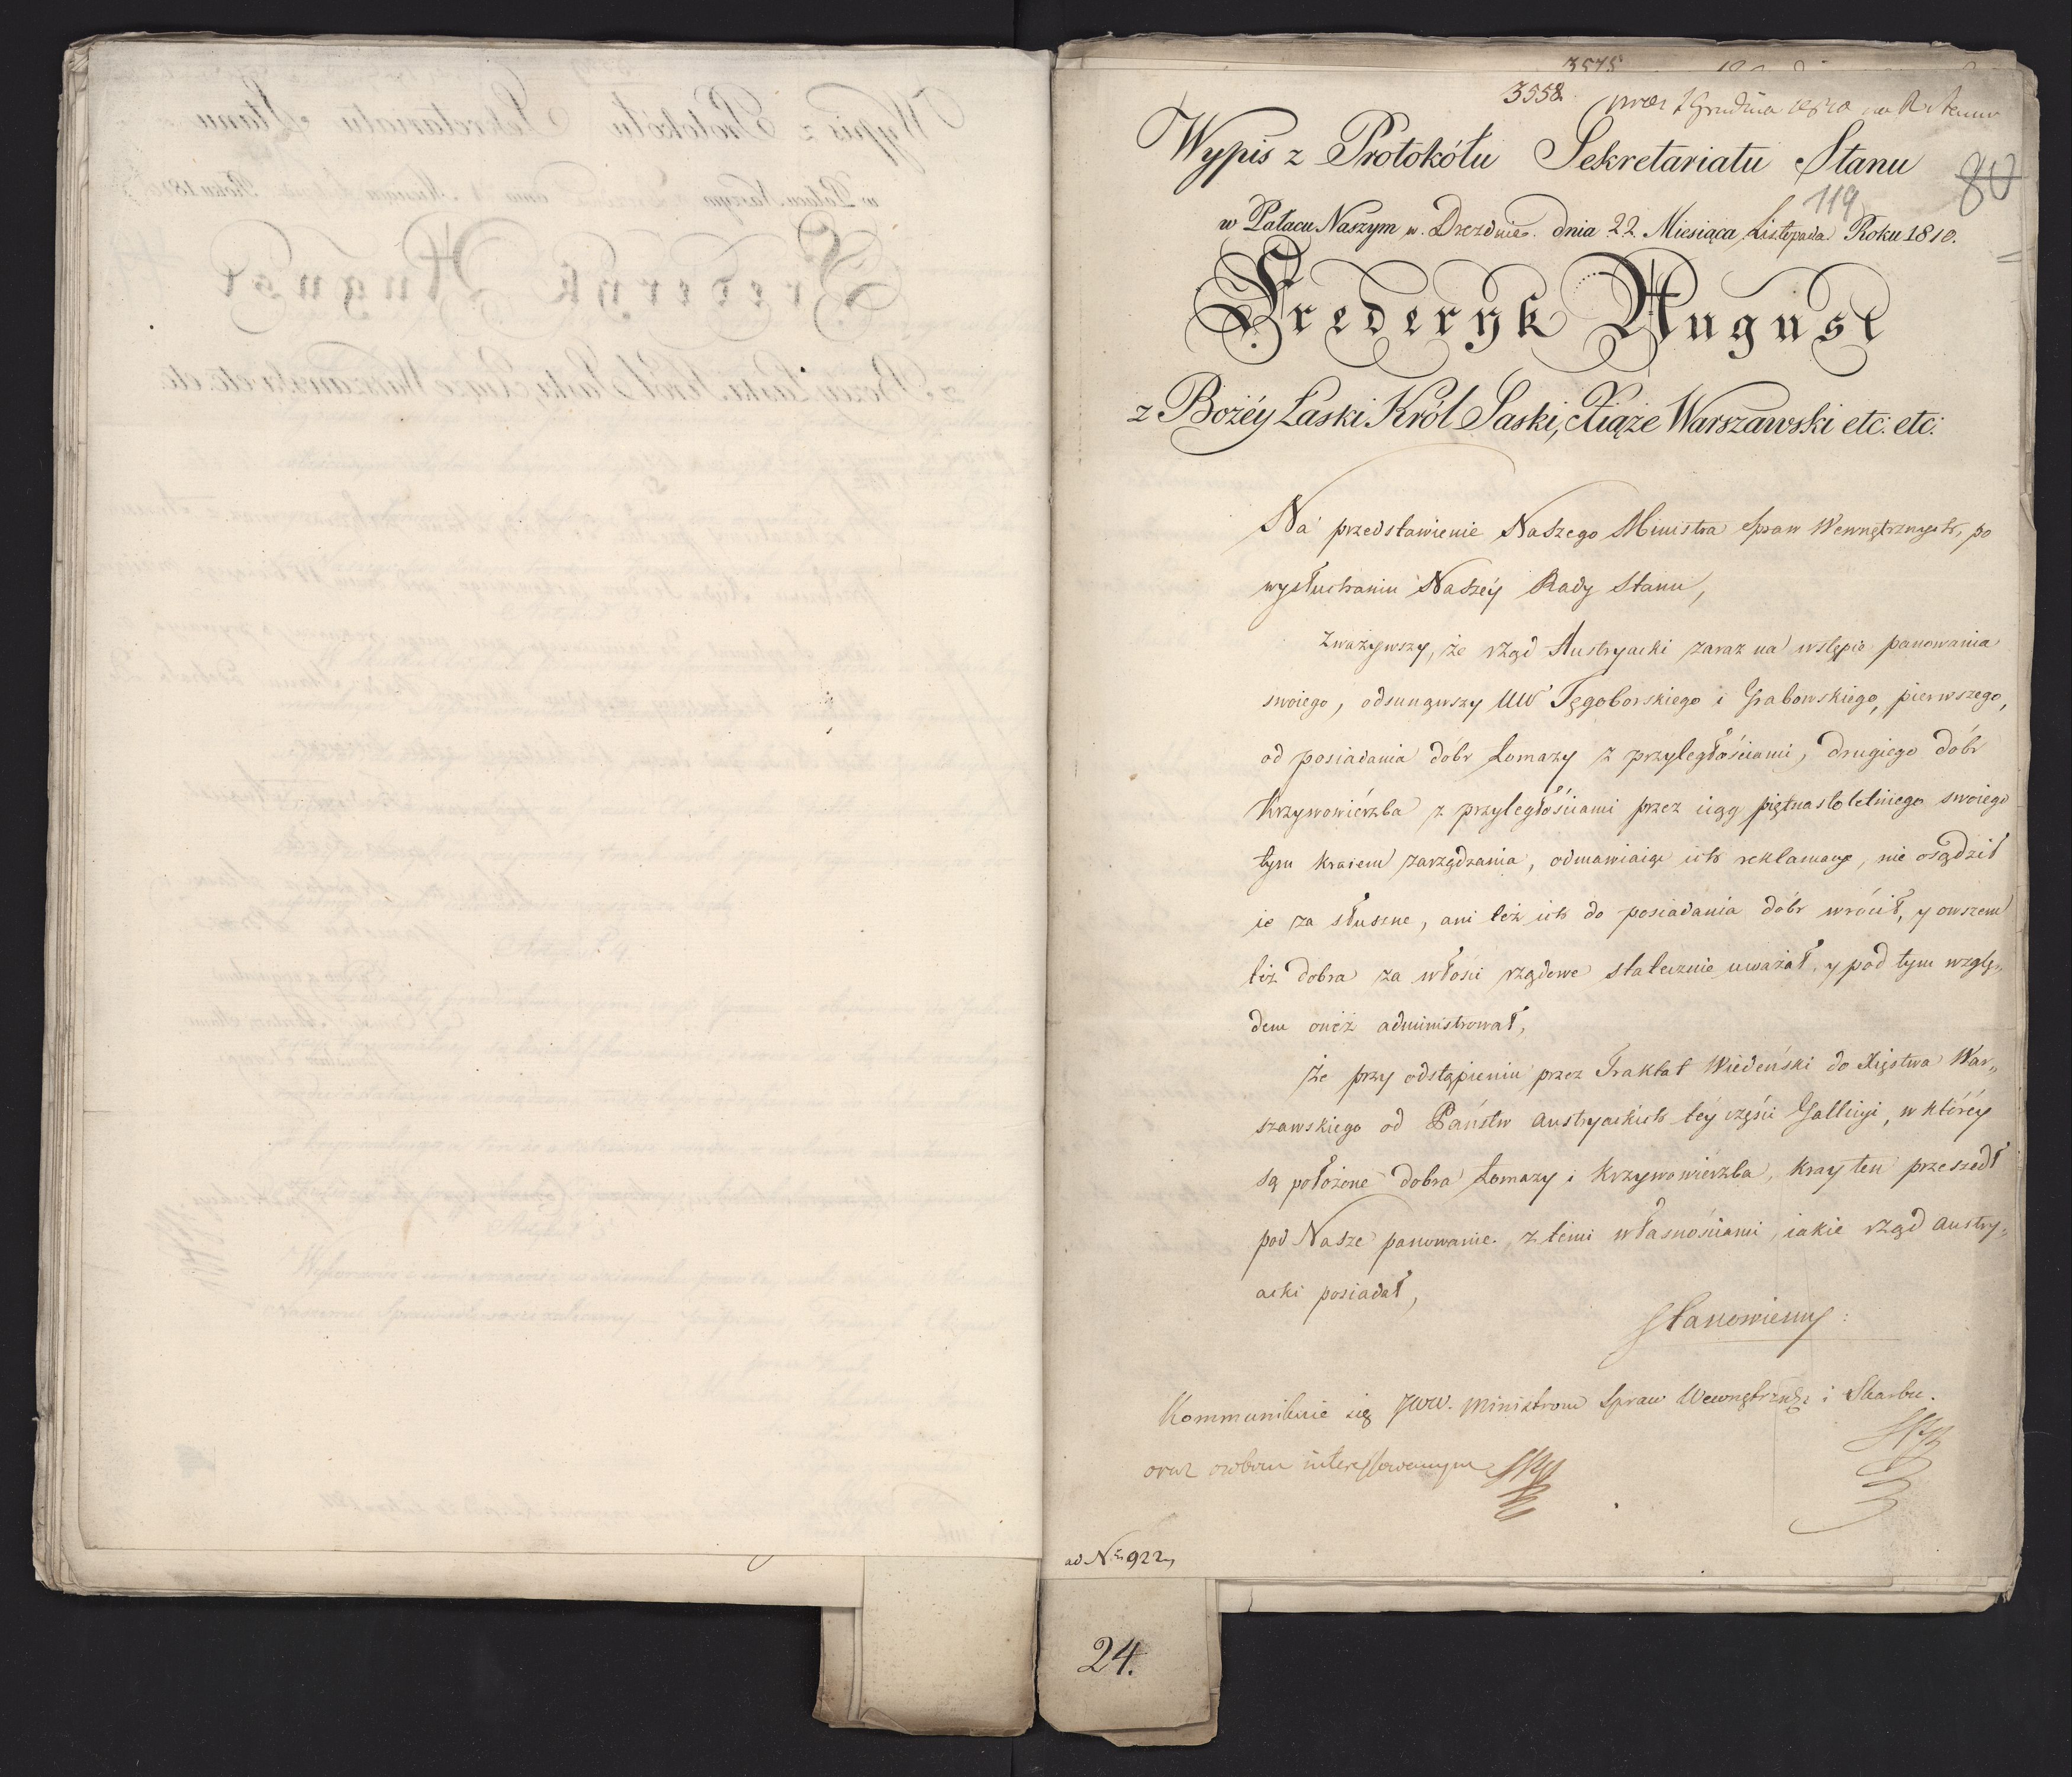 3575
3558. 1 Grudnia 1810 na R. Stanu
Wypis z Protokółu Sekretariatu Stanu
80
119
w Pałacu Naszym w Dreznie dnia 22 Miesiąca Listopada Roku 1810.
Frederyk August
z Bożéy Łaski Król Saski, Xiąże Warszawski etc: etc:
Na przedstawienie Naszego Ministra Spraw Wewnętrznych, po
wysłuchaniu Naszéy Rady Stanu,
Zważywszy, że rząd Austryacki zaraz na wstępie panowania
swoiego, odsunąwszy UU Tęgoborskiego i Grabowskiego, pierwszego,
od posiadania dóbr Łomazy z przyległościami, drugiego dóbr
Krzywowiérzba z przyległościami przez ciąg piętnastoletniego swoiego
tym kraiem zarządzania, odmawiaiąc ich reklamacye, nie osądził
ie za słuszne, ani też ich do posiadania dóbr wrócił, y owszem
też dobra za włości rządowe statecznie uważał, y pod tym wzglę„
dem onéż administrował,
że przy odstąpieniu przez Traktat Wiedeński do Xięstwa War„
szawskiego od Państw Austryackich téy części Gallicyi, w któréy
są położone dobra Łomazy i Krzywowierzba, kray ten przeszedł
pod Nasze panowanie z temi własnościami, iakie rząd Austry„
acki posiadał,
Stanowiemy:
Kommunikuie się JWW. Ministrom Spraw Wewnętrznych i Skarbu.
oraz osobom interessowanym
ad Nrm 922,
24.